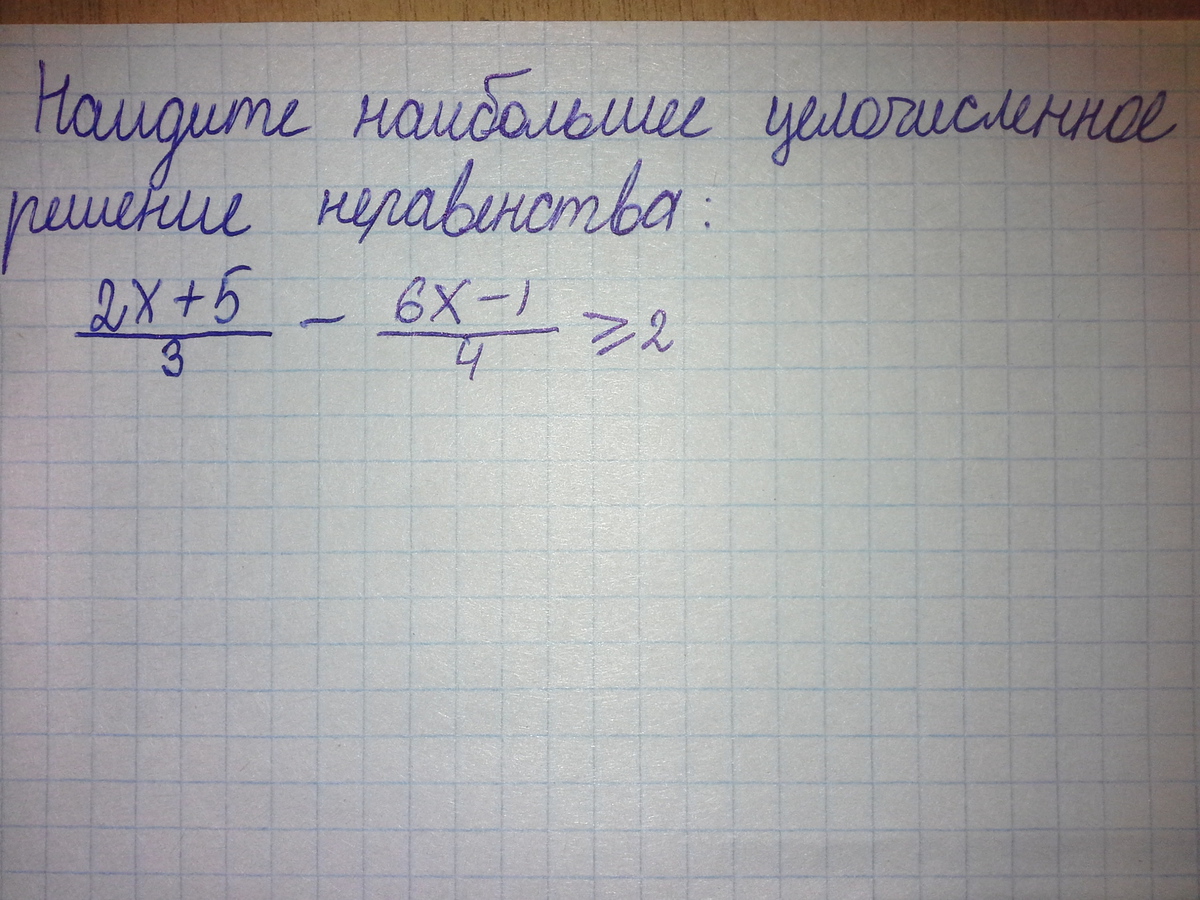 Найдите наибольшее целочисленное
решение неравенства:
(2x+5)/3 - (6x-1)/4 ⩾ 2